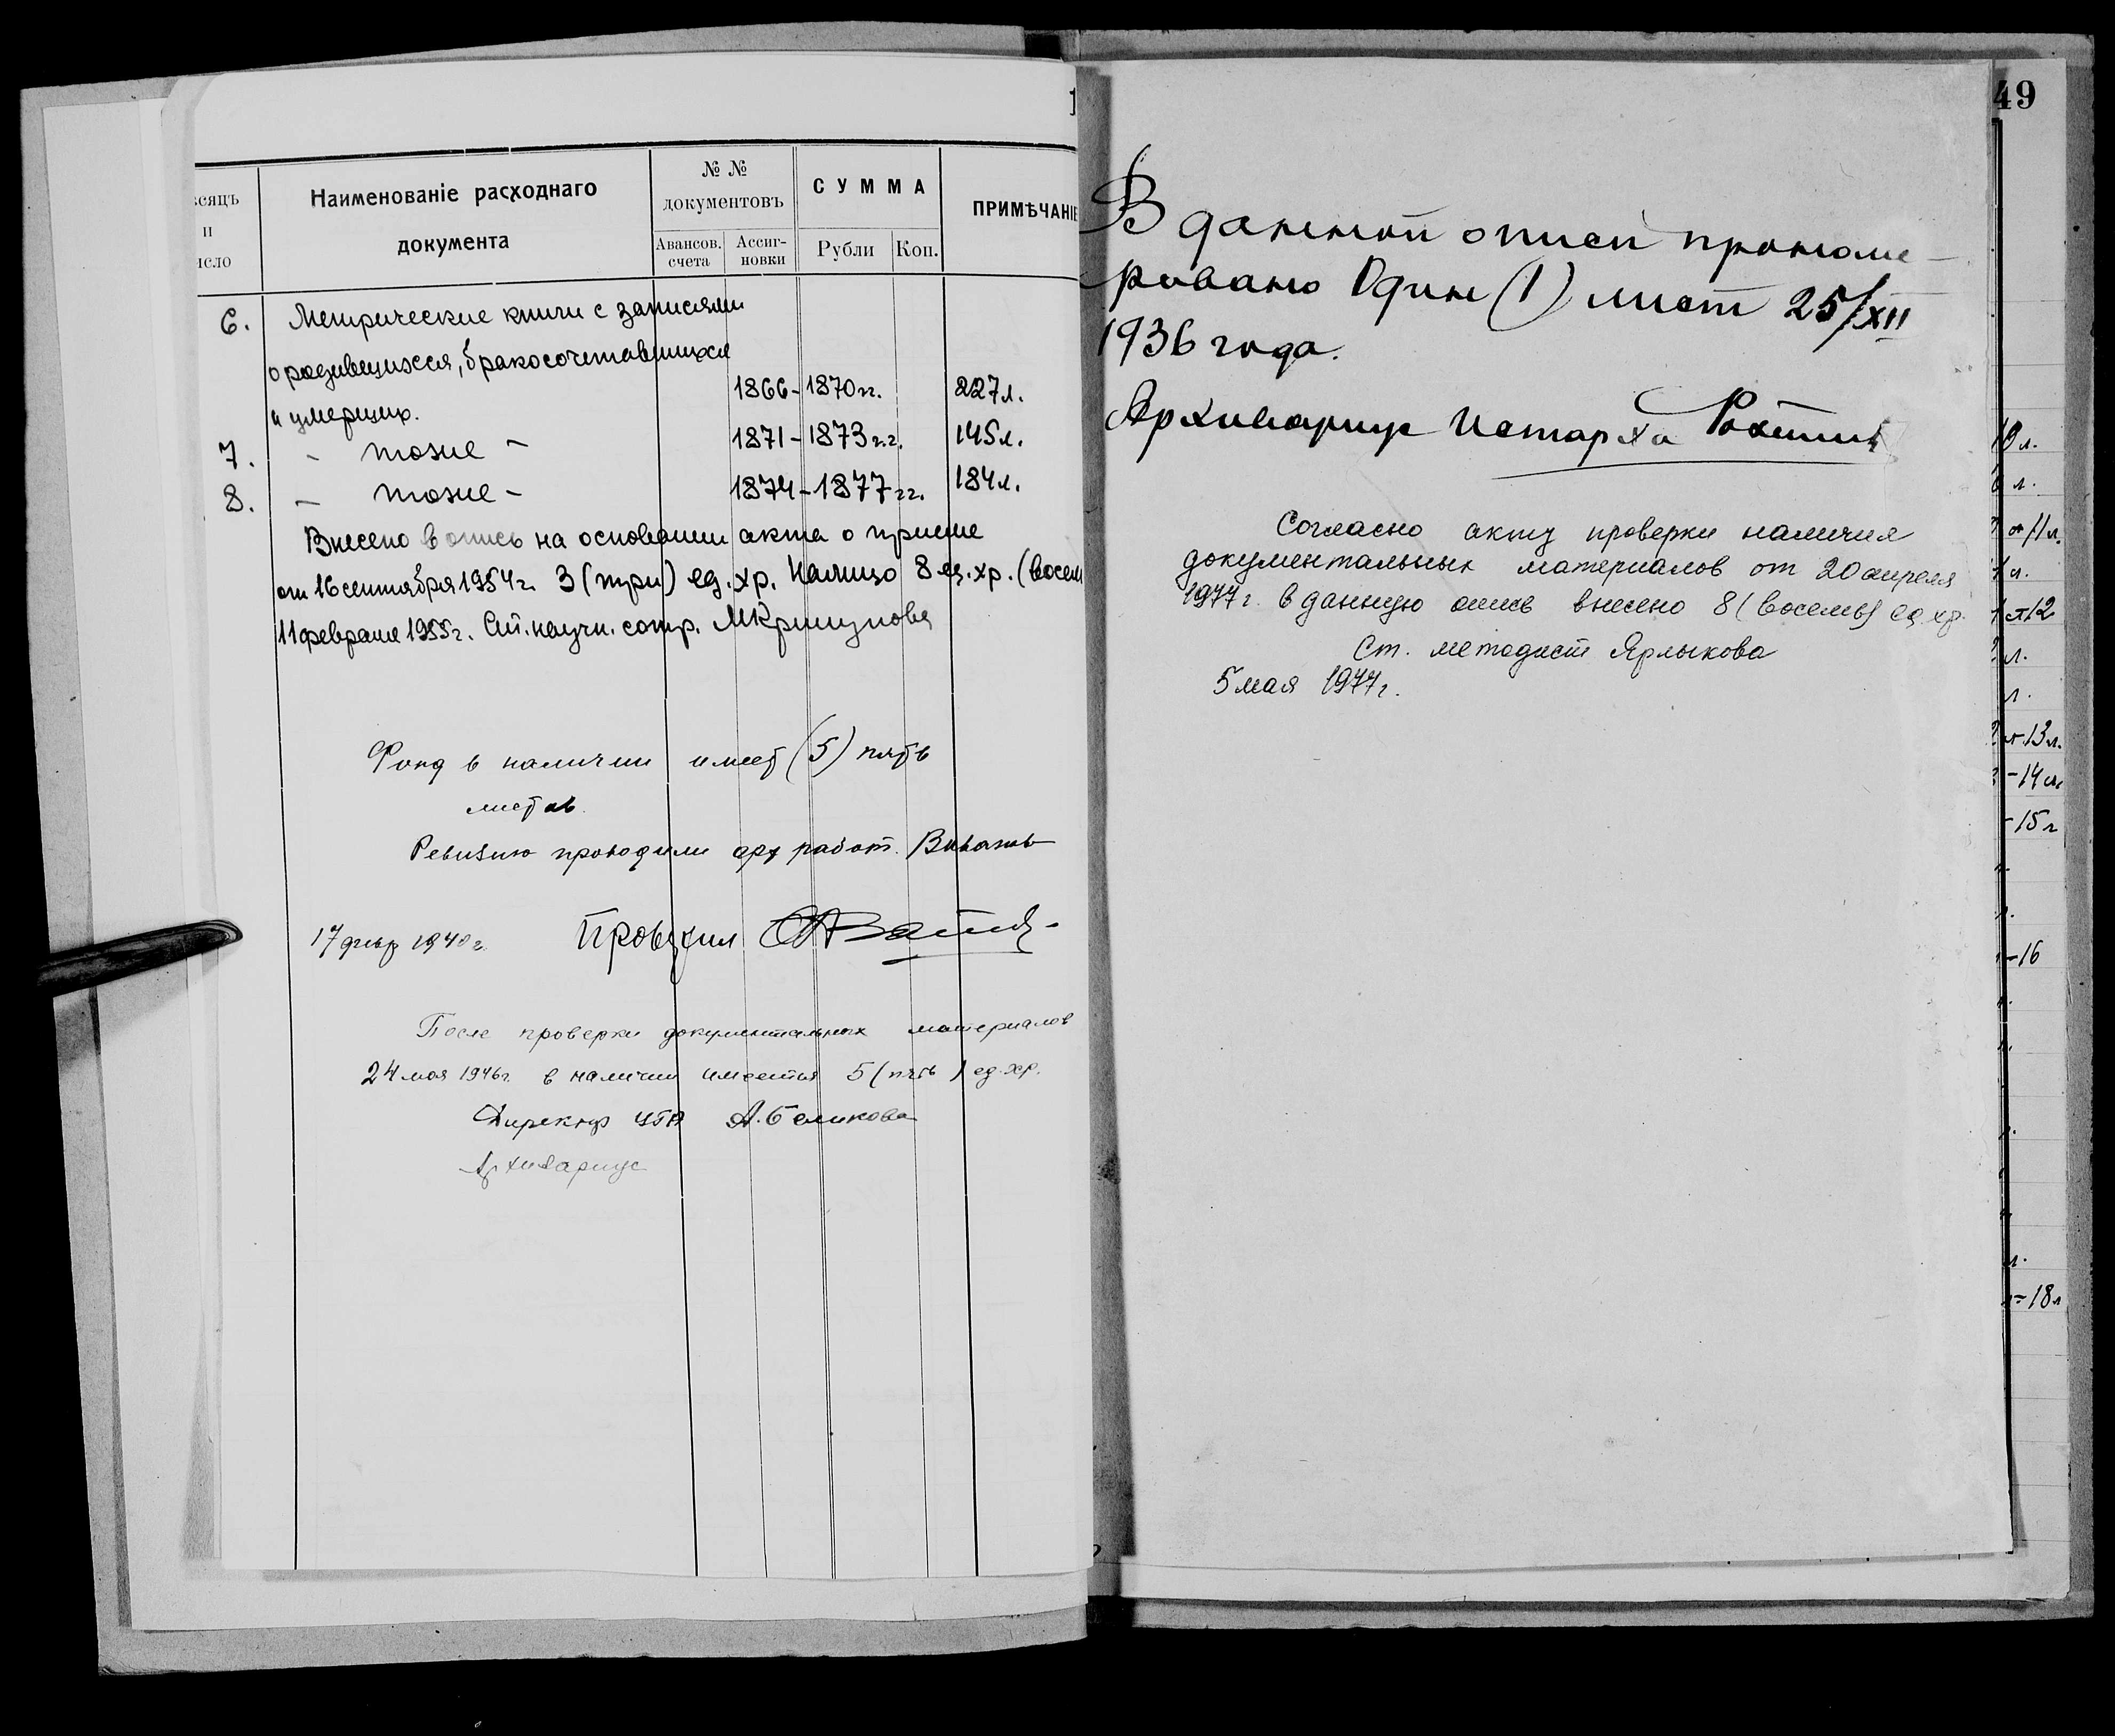 49
сяцъ
и
исло
Наименованіе расходнаго
документа
№ №
документовъ
Авансов.
счета
Ассиг-
новки
СУММА
Рубли
Коп.
ПРИМѢЧАНІЕ
6. Метрические книги с записями
о родившихся, бракосочетавшихся
и умерших. 1866-1870 гг. 227 л.
7. - тоже - 1871-1873 г.г. 145 л.
8. - тоже - 1874-1877 гг. 184 л.
Внесено в опись на основании акта о приеме
от 16 сентября 1954 г. 3 (три) ед. хр. Налицо 8 ед. хр. (восем
11 февраля 1955 г. Ст. научн. сотр.
Фонд в наличии имеет (5) пять
листов.
Ревизию проводили арх работ.
17 февр 1940 г. Проверил
После проверки документальных материалов
24 мая 1946 г. в наличии имеется 5 (пять) ед. хр.
Директор ЦГА А. Беликова
Архивариус
В данной описи прономе-
ровано Один (1) лист 25/XII
1936 года.
Архивариус Истарха
Согласно акту проверки наличия
документальных материалов от 20 апреля
1977 г. в данную опись внесено 8 (восемь) ед. хр.
Ст. методист Ярлыкова
5 мая 1977 г.
л.
л.
л.
13 л.
-14
-15
-16
л.
18 л